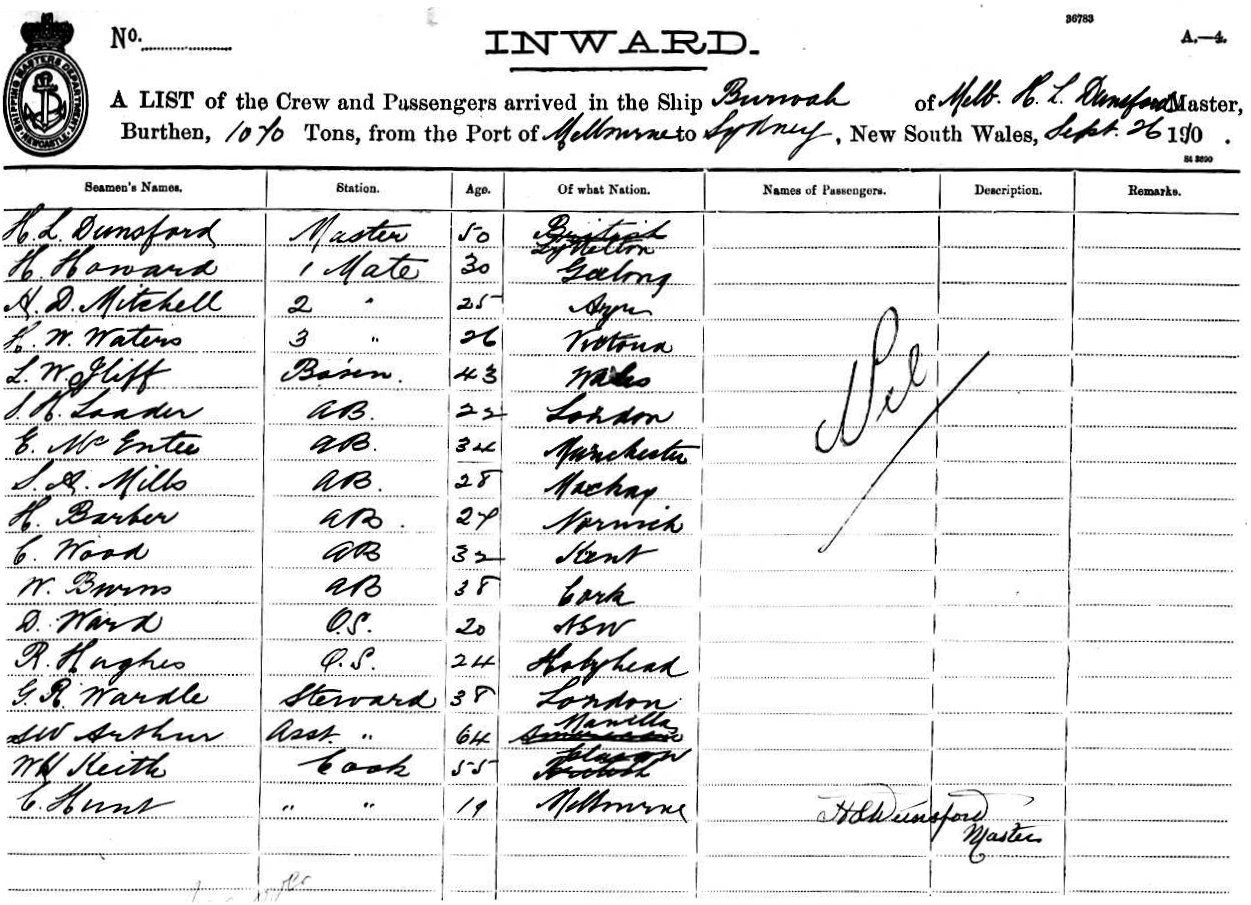 36783
No.
INWARD.
A.—4.
SHIPPING MASTERS DEPARTMENT NEWCASTLE
A LIST of the Crew and Passengers arrived in the Ship Burwah of Melb. H. L. Dunsford Master,
Burthen, 1070 Tons, from the Port of Melbourne to Sydney, New South Wales, Sept. 26 1910.
S4 3890
Seamen's Names. Station. Age. Of what Nation. Names of Passengers. Description. Remarks.
H. L. Dunsford Master 50 British Lyttelton
H. Howard 1 Mate 30 Geelong
A. D. Mitchell 2 " 25 Ayr
H. W. Waters 3 " 26 Victoria
L. W. Iliff Bosun. 43 Wales
J. H. Loader AB. 22 London
E. McEntee AB. 34 Manchester
S. A. Mills AB. 28 Mackay
H. Barber AB. 24 Norwich
C. Wood AB 32 Kent
W. Burns AB 38 Cork
D. Ward O.S. 20 NSW
R. Hughes O.S. 24 Holyhead
G. R. Wardle Steward 38 London
SW Arthur Asst. " 64 Manilla
WH Keith Cook 55 Glasgow
C. Hunt " " 19 Melbourne
Nil
H L Dunsford
Master